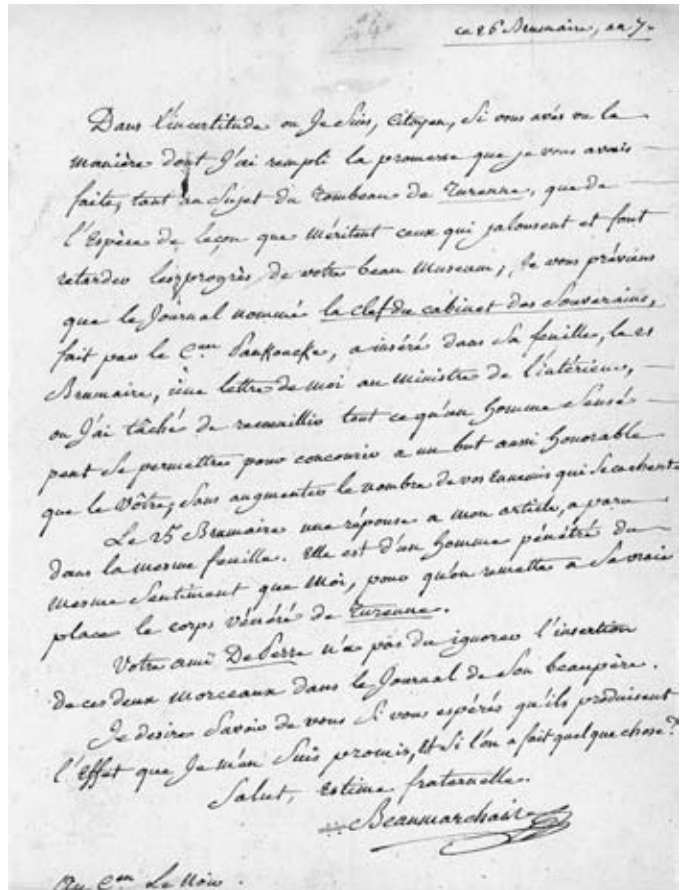 ce 26 Brumaire, an 7.
Dans l'incertitude ou Je Suis, Citoyen, Si vous avés vu la
manière dont J'ai rempli la promesse que je vous avais
faite, tant au Sujet du Tombeau de Turenne, que de
l'Espèce de leçon que méritent ceux qui jalousent et font
retarder les progrès de votre beau Museum; Je vous préviens
que le Journal nommé la clef du cabinet des Souverains,
fait par le Cen Pankoucke, a inséré dans Sa feuille, le 21
Brumaire, une lettre de moi au ministre de l'intérieur,
ou J'ai tâché de recueillir tout ce qu'un homme Sensé
peut Se permettre pour concourir a un but aussi honorable
que le vôtre, Sans augmenter le nombre de vos Ennemis qui Se cachent.
Le 25 Brumaire une réponse a mon article, a paru
dans la mesme feuille. Elle est d'un homme pénétré du
mesme Sentiment que moi, pour qu'on remette a Sa vraie
place le corps vénéré de Turenne.
Votre ami De Perre n'a pas du ignorer l'insertion
de ces deux morceaux dans le Journal de Son beaupère.
Je desire Savoir de vous Si vous espérés qu'ils produisent
l'Effet que Je m'en Suis promis, Et Si l'on a fait quelque chose?
Salut, Estime fraternelle.
Beaumarchais
Au Cen Le Noir.